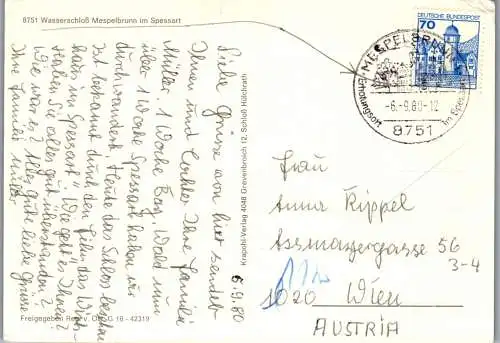 8751 Wasserschloß Mespelbrunn im Spessart
6.9.80
Liebe Grüsse von hier sendet
Ihnen und Tochter Ihre Familie
Müller. 1 Woche Bay. Wald und
über 1 Woche Spessart haben wir
durchwandert. Heute das Schloss besichtigt
Ist bekannt durch den Film das Wirts-
haus im Spessart". Wie geht es Ihnen?
Haben Sie alles gut überstanden?
Wie war es? Alles Gute liebe Grüsse
Ihre Familie Müller
Freigegeben Reg. v. Ofr. G 18 - 42319
Krapohl-Verlag 4048 Grevenbroich 12, Schloß Hülchrath
DEUTSCHE BUNDESPOST
70
MESPELBRUNN
-6.-9.80-12
Erholungsort im Spessart
8751
Frau
Anna Rippel
Assmayergasse 56
3-4
1020 Wien
AUSTRIA